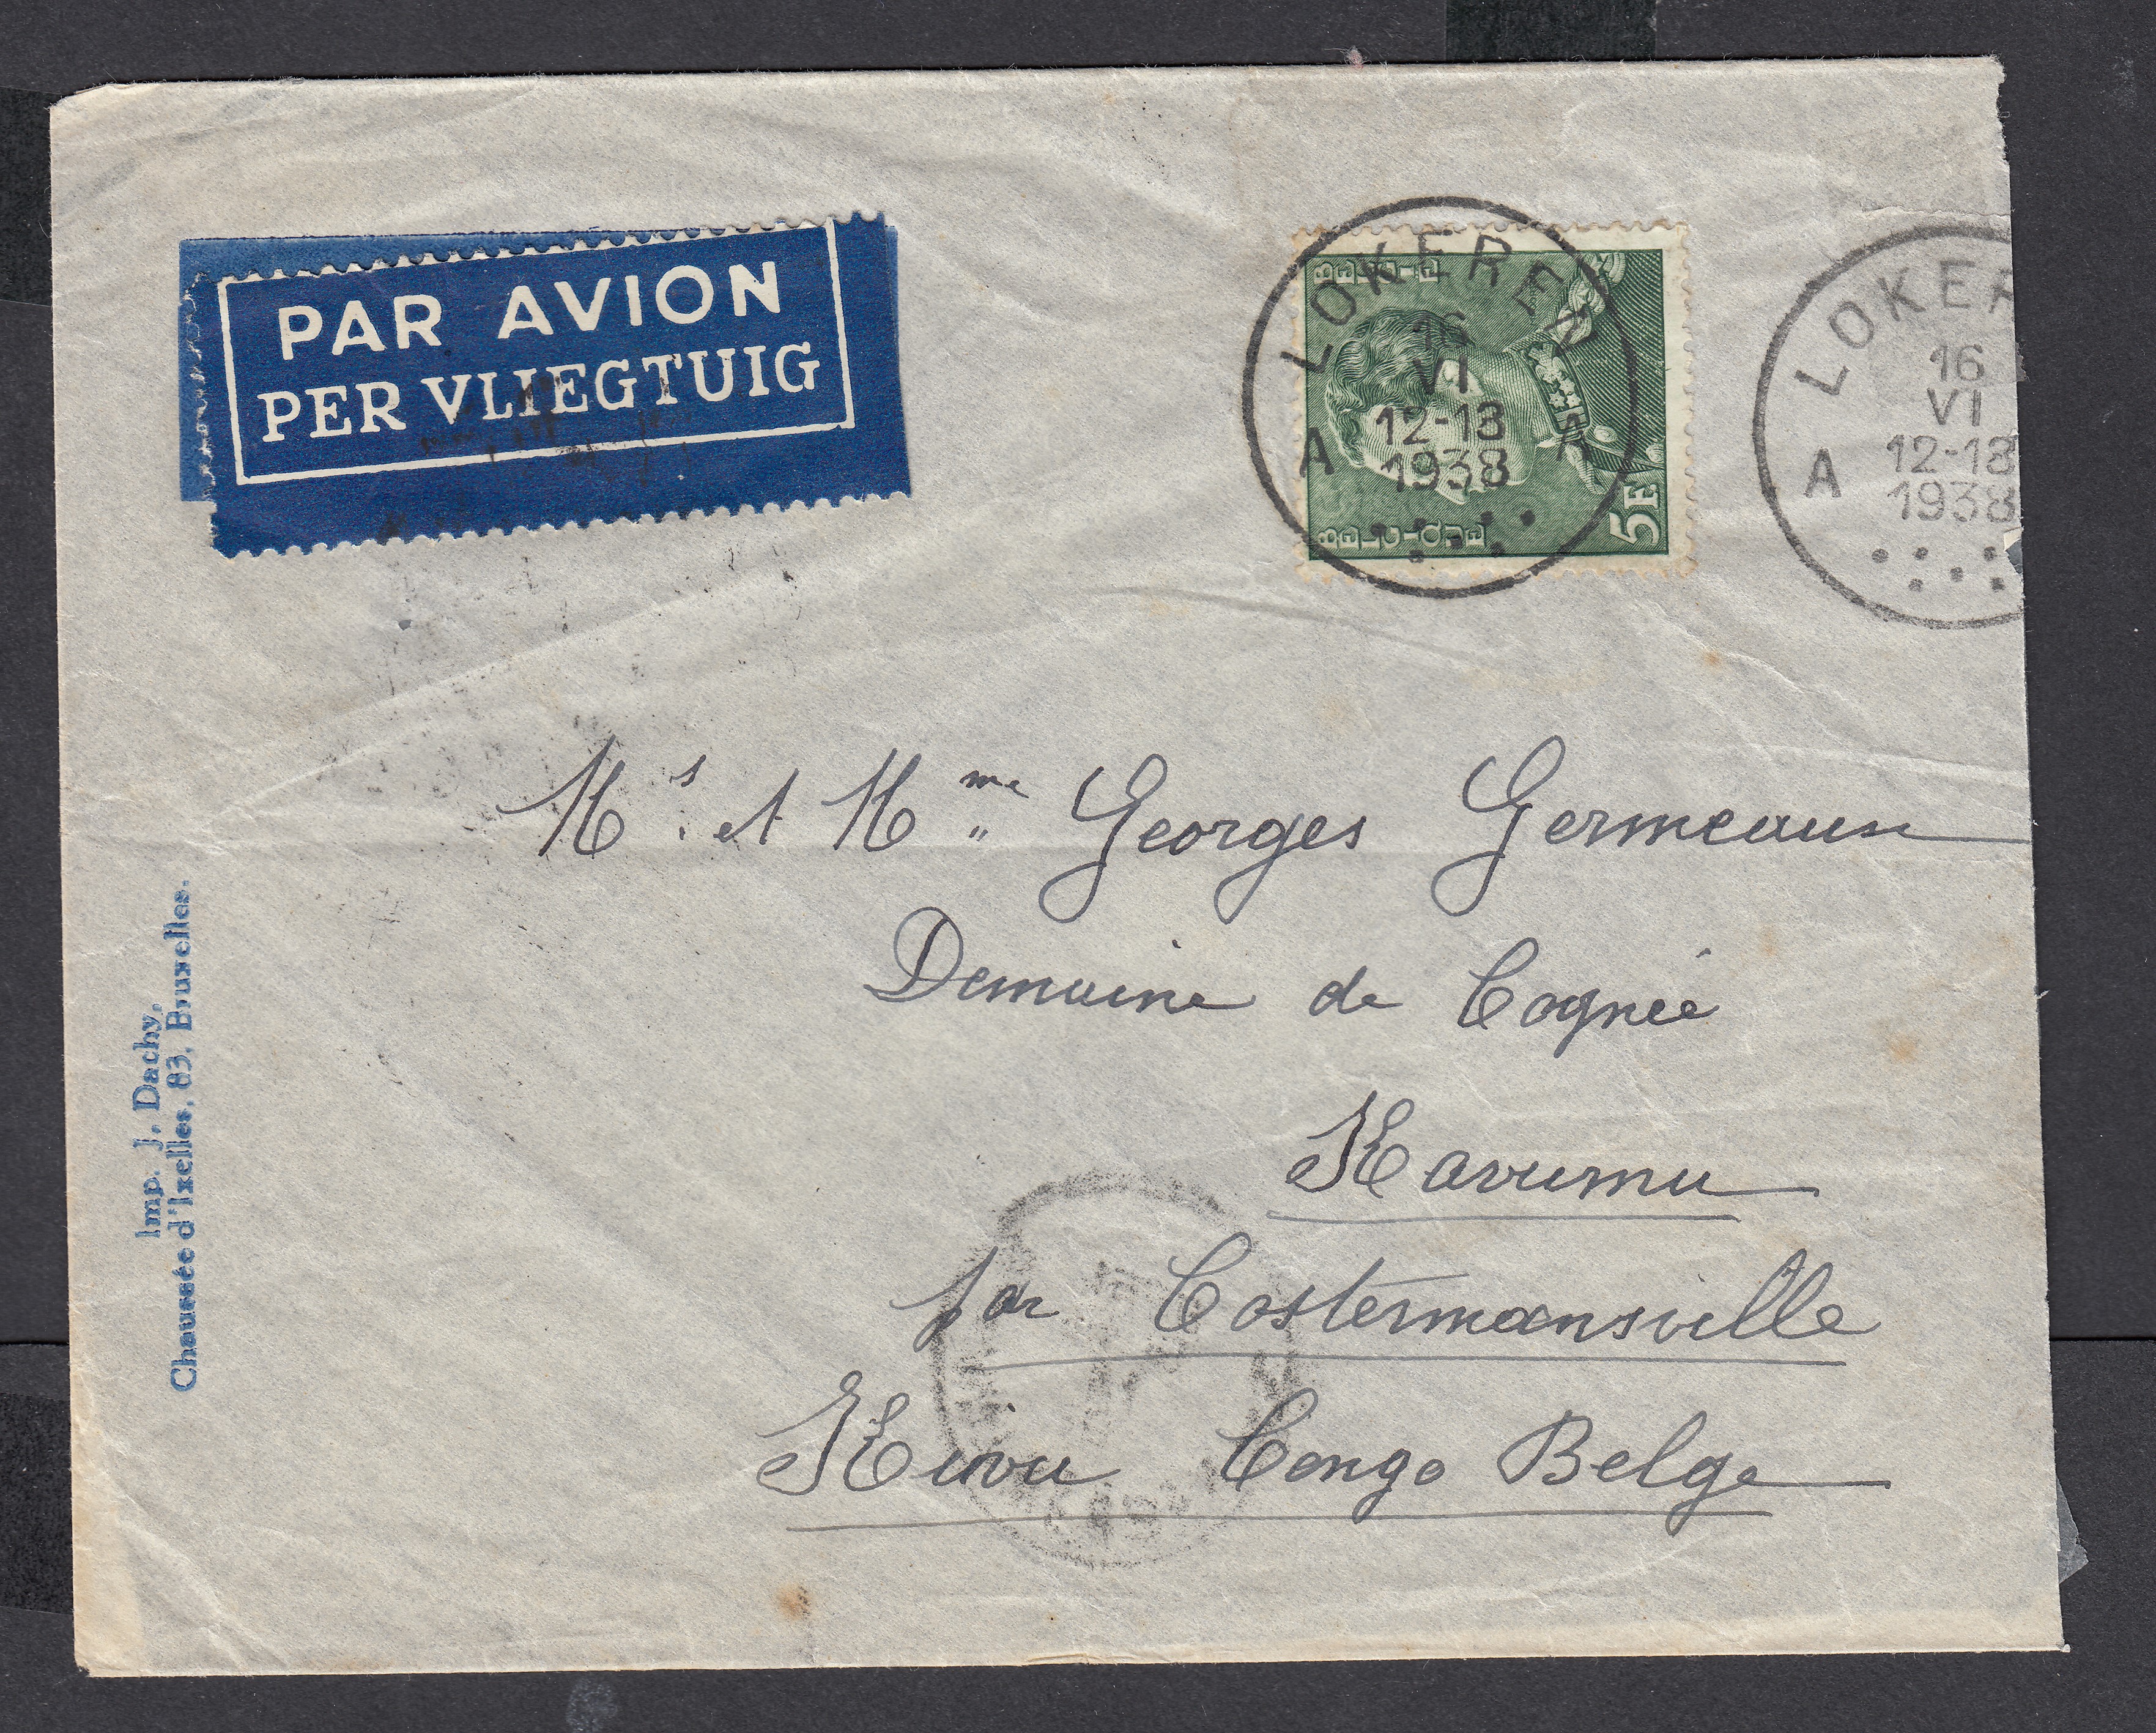 PAR AVION
PER VLIEGTUIG
BELGIE
BELGIQUE
5F
LOKEREN
16
VI
12-13
1938
A A
LOKER
16
VI
12-13
1938
A
Ms. et Mme Georges Germeaux
Domaine de Cognée
Kavumu
par Costermansville
Kivu Congo Belge
Imp. J. Dachy,
Chaussée d'Ixelles, 83, Bruxelles.